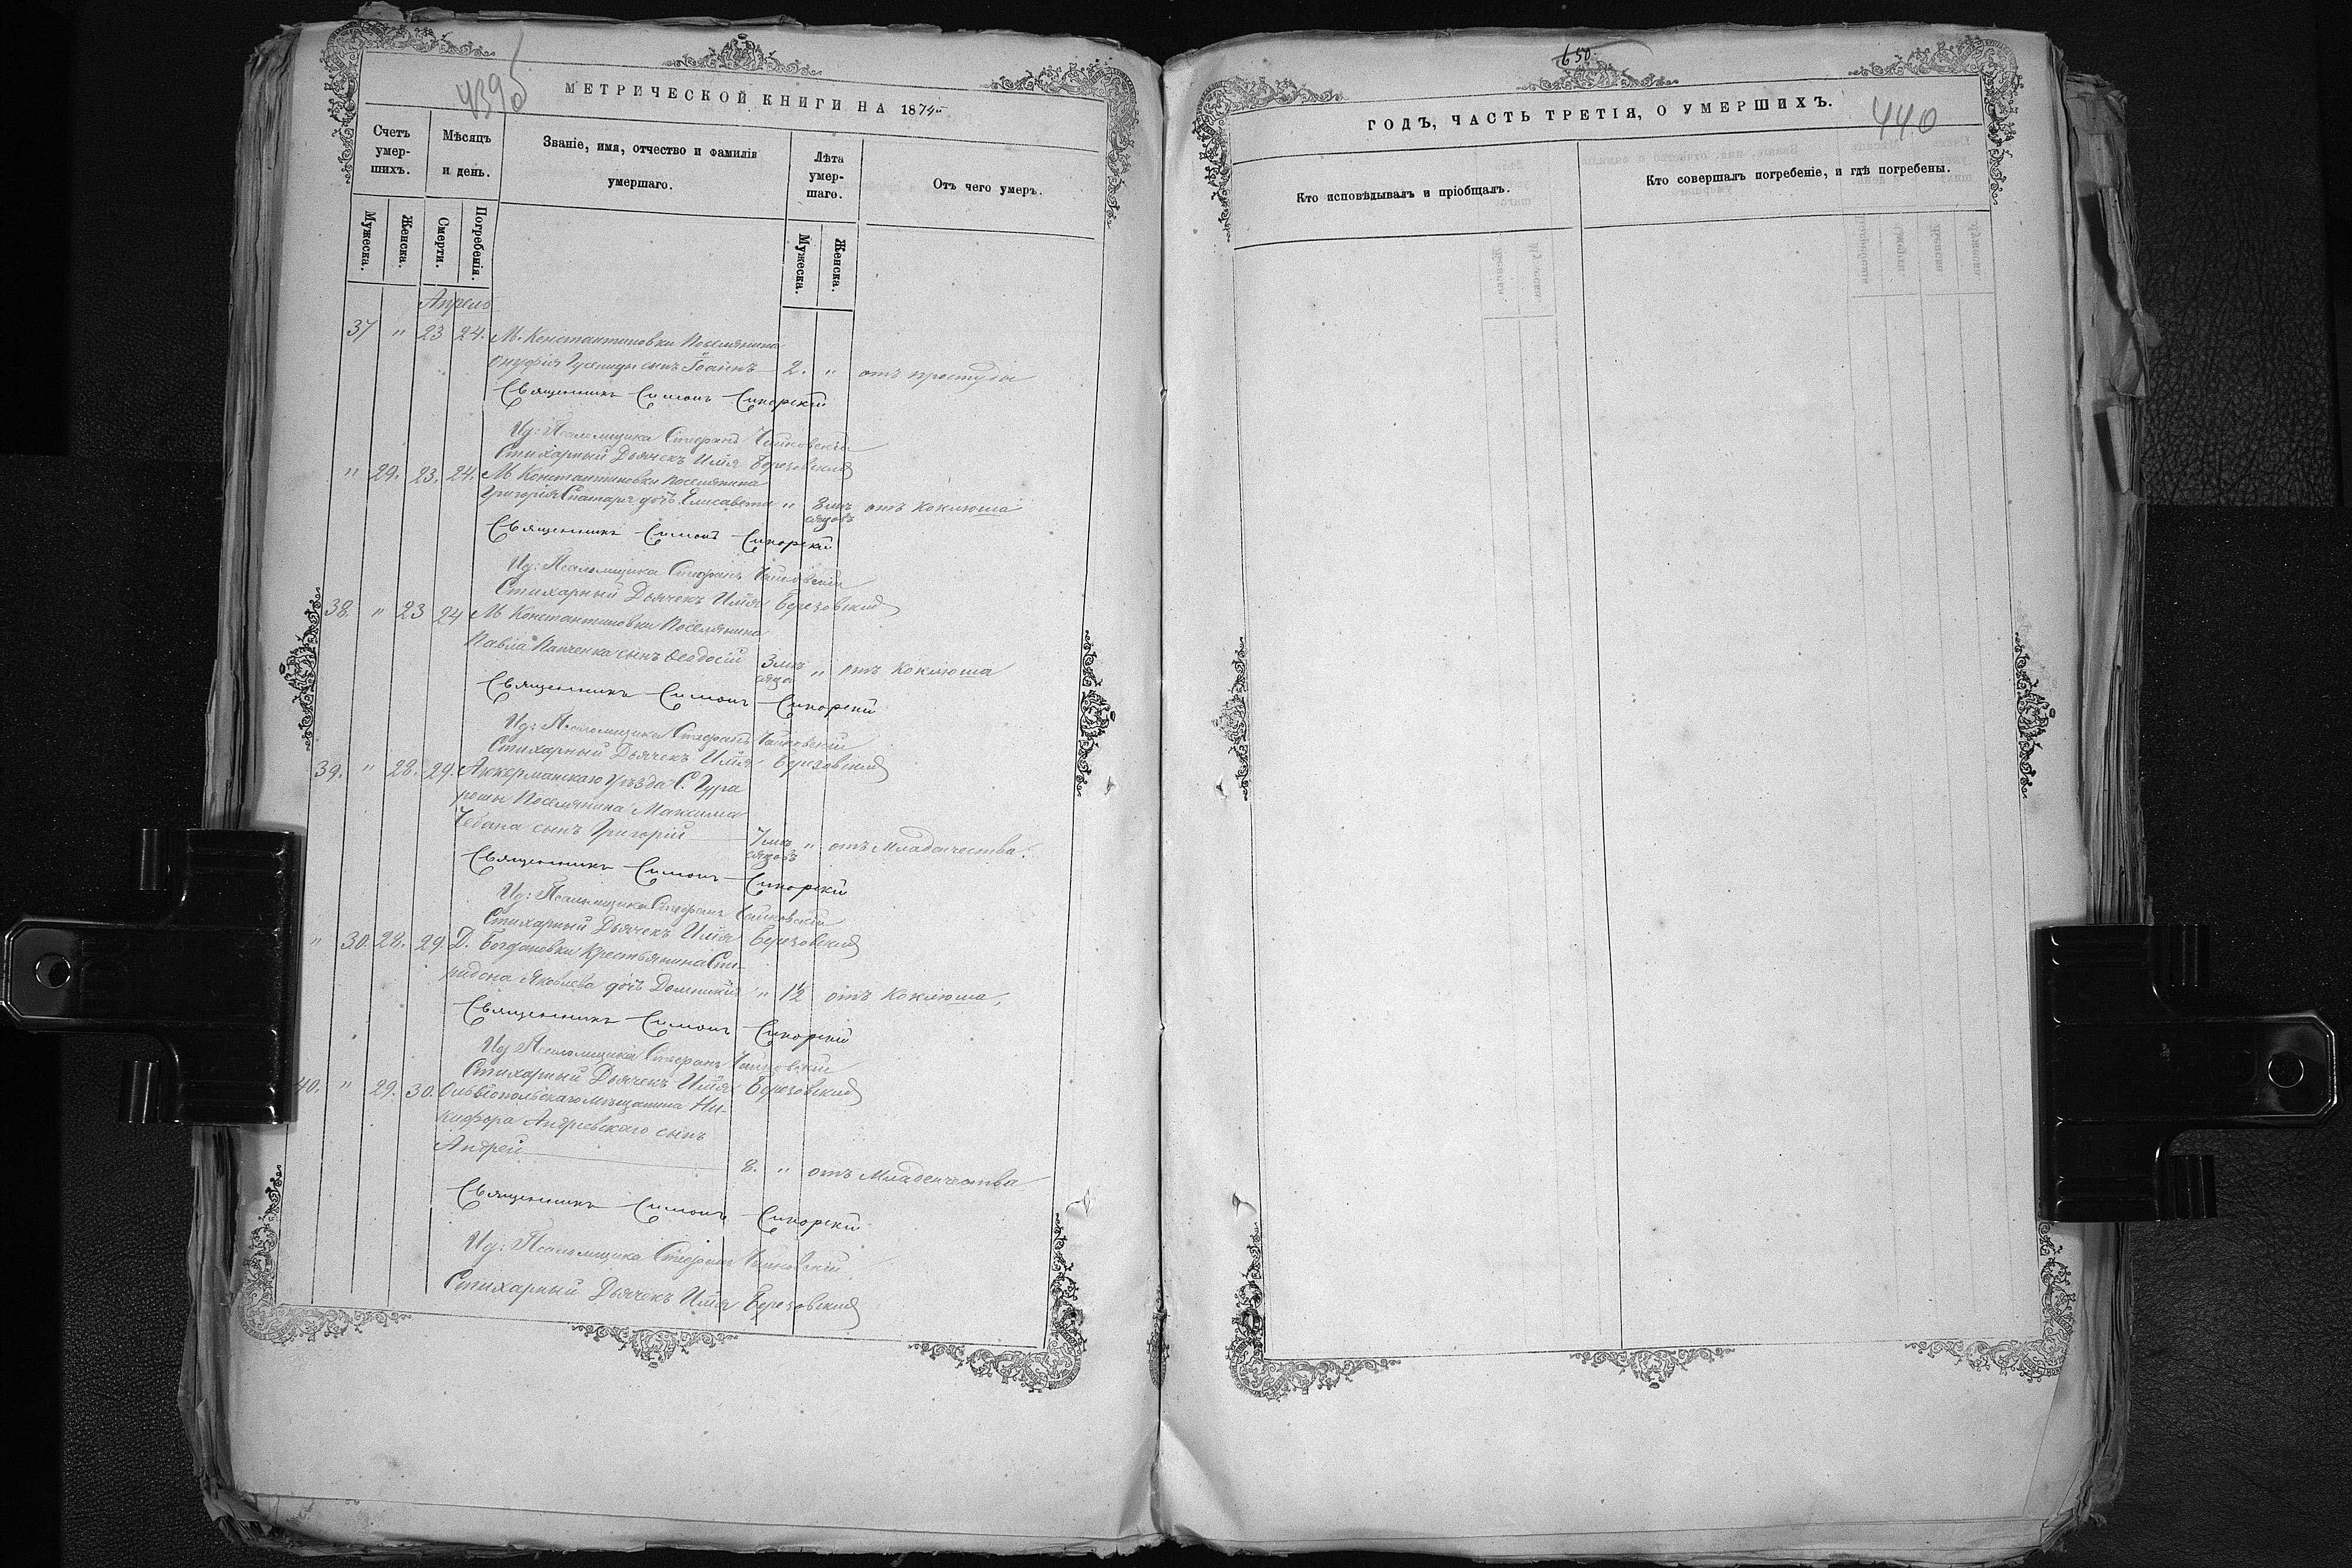 439об
МЕТРИЧЕСКОЙ КНИГИ НА 1874й
Счетъ умершихъ.
Мѣсяцъ и день.
Званіе, имя, отчество и фамилія умершаго.
Лѣта умершаго.
Отъ чего умеръ.
Мужеска.
Женска.
Смерти.
Погребенія.
Мужеска.
Женска.
Апрель
37 " 23 24. М. Константиновки Поселянина
Онуфрія сынъ Іоаннъ 2. " отъ простуды
Священникъ Симонъ Сикорскій
Ид: Псаломщика Стефанъ Чайковскій
Стихарный Дьячекъ Илія Березовскій
" 29. 23. 24. М Константиновки поселянина
Григорія Спатаря дочь Елисавета " 3 мѣсяцовъ отъ Коклюша
Священникъ Симонъ Сикорскій
Ид: Псаломщика Стефанъ Чайковскій
Стихарный Дьячекъ Илія Березовскій
38. " 23 24 М Константиновки Поселянина
Павла Панченка сынъ Ѳеодосій 3 мѣсяцов " отъ Коклюша
Священникъ Симонъ Сикорскій
Ид: Псаломщика Стефанъ Чайковскій
Стихарный Дьячекъ Илія Березовскій
39. " 28. 29. Аккерманскаго Уѣзда С. Гура
рошы Поселянина Максима
Чебана сынъ Григорій 7 мѣсяцовъ " отъ Младенчества.
Священникъ Симонъ Сикорскій
Ид: Псаломщика Стефанъ Чайковскій
Стихарный Дьячекъ Илія Березовскій
" 30. 28. 29. Д. Богдановки Крестьянина Спи-
ридона Яковлева дочь Домникія " 1½ отъ Коклюша,
Священникъ Симонъ Сикорскій
Ид Псаломщика Стефанъ Чайковскій
Стихарный Дьячекъ Илія Березовскій
40. " 29. 30. Ольвіопольскаго мѣщанина Ни-
кифора Андріевскаго сынъ
Андрей 8. " отъ Младенчества
Священникъ Симонъ Сикорскій
Ид: Псаломщика Стефанъ Чайковскій
Стихарный Дьячекъ Илія Березовскій
650.
440
ГОДЪ, ЧАСТЬ ТРЕТІЯ, О УМЕРШИХЪ.
Кто исповѣдывалъ и пріобщалъ.
Кто совершалъ погребеніе, и гдѣ погребены.